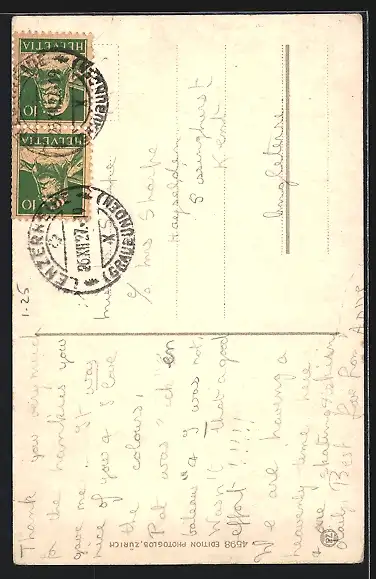 Thank you very much
for the hankies you
gave me. It was
nice of you & I love
the colours,
Pat was "ich en
valeau" & I was not,
Wasn't that a good
effort!!!!!
We are having a
heavenly time here
& are skating & skiing
daily Best love from
ANNE
c/o Mrs Sharpe
Hazelden
Sissinghurst
Kent
Angleterre
HELVETIA
10
HELVETIA
10
LENZERHEIDE
(GRAUBÜNDEN)
26.XII.27
1.25
4598 EDITION PHOTOGLOB, ZÜRICH